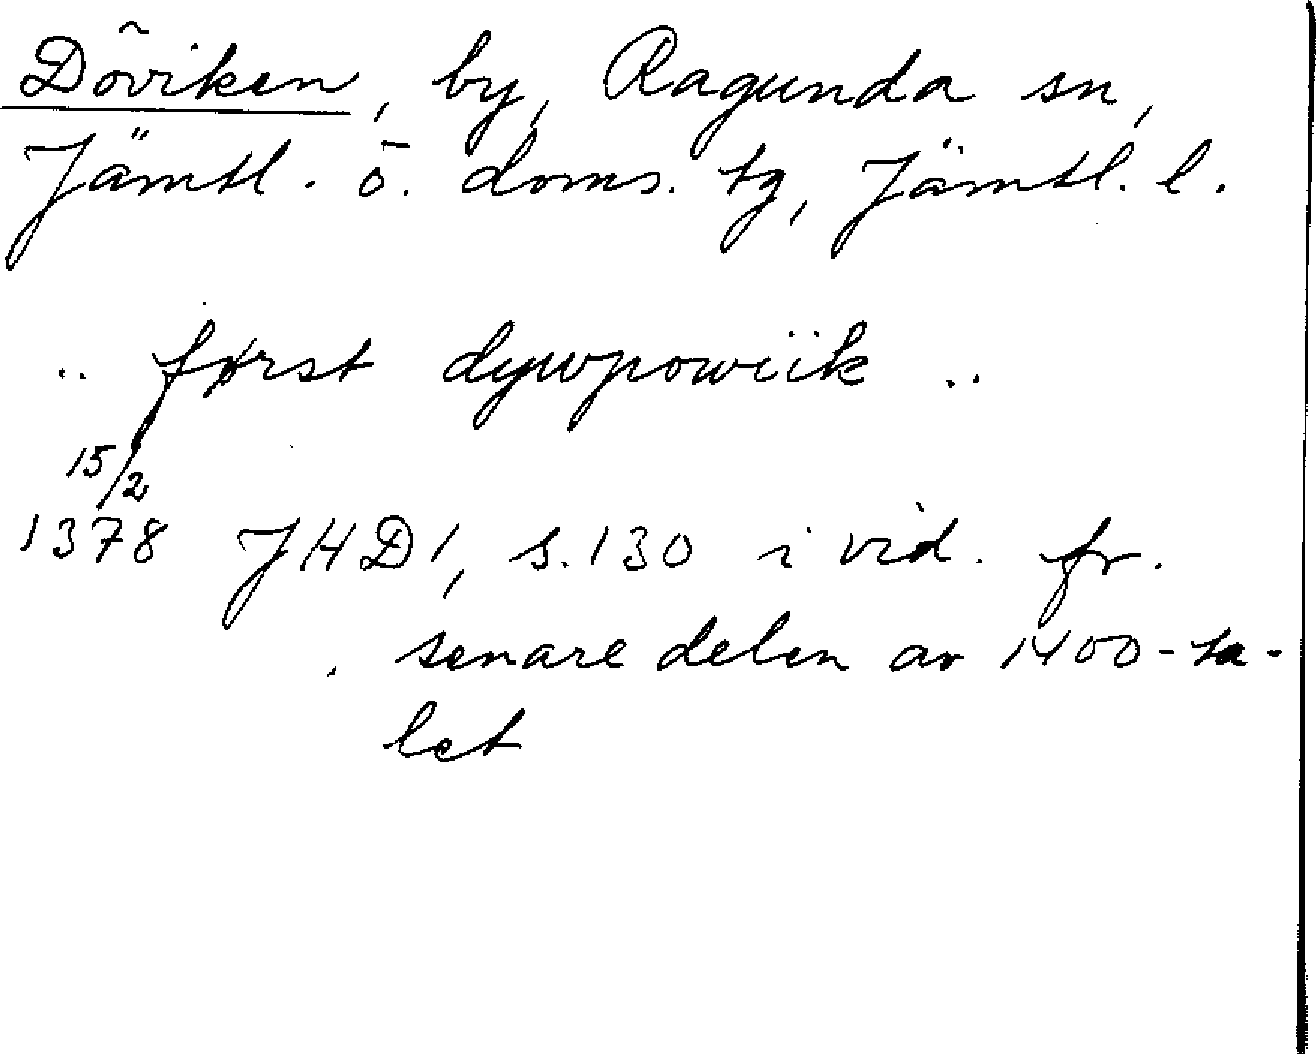 Döviken, by, Ragunda sn,
Jämtl. ö. doms. tg, Jämtl. l.
.. først dywpowiik ..
15/2
1378 JHD1, s.130 i vid. fr.
senare delen av 1400-ta-
let